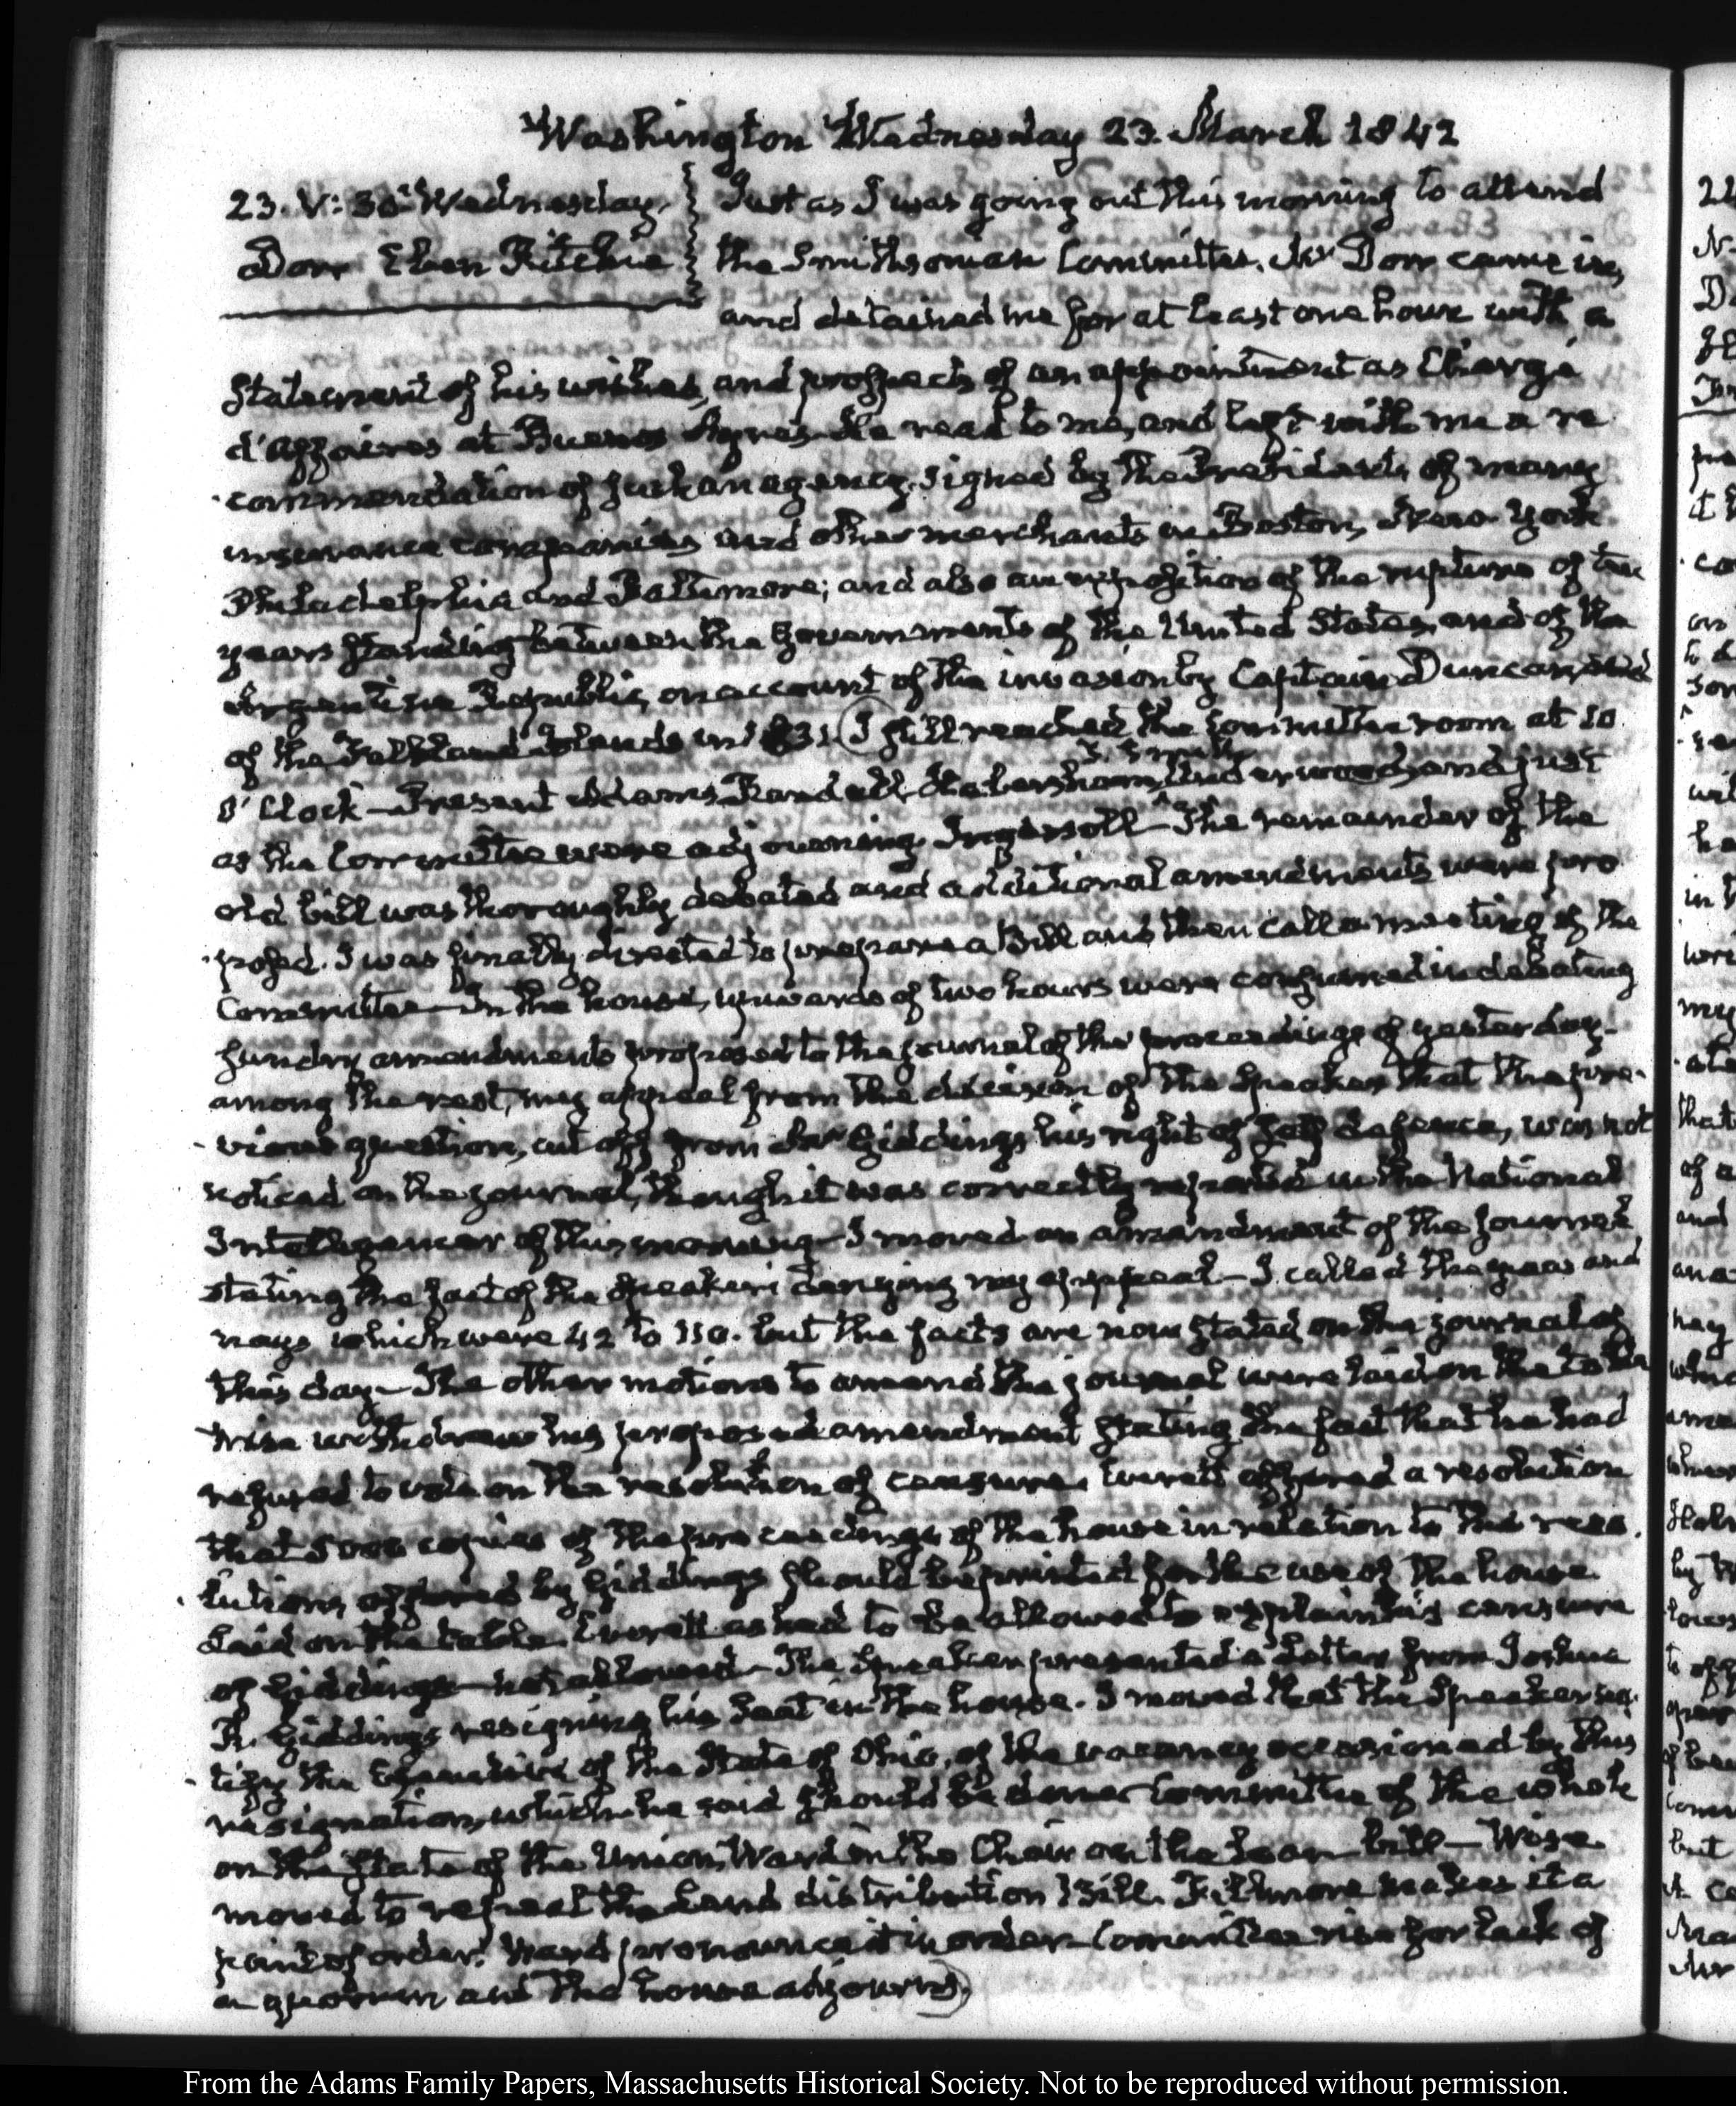 Washington Wednesday 23. March 1842
23. V: 30. Wednesday.
Dorr Eben Ritchie
Just as I was going out this morning to attend
the Smithsonian Committee, Mr Dorr came in,
and detained me for at least one hour with a
statement of his wishes, and prospects of an appointment as Chargé
d'Affaires at Buenos Ayres. He read to me, and left with me a re
commendation of such an agency, signed by the Presidents of many
insurance companies and other merchants in Boston, New York
Philadelphia and Baltimore; and also an exposition of the rupture of ten
years standing between the Governments of the United States, and of the
Argentine Republic, on account of the invasion by Captain Duncan
of the Falkland Islands in 1831. I still reached the Committee room at 10
O'Clock— Present Adams, Randall, Habersham, Underwood, and just
T. Smith
as the Committee were adjourning, Ingersoll— The remainder of the
old bill was thoroughly debated and additional amendments were pro
posed. I was finally directed to prepare a Bill and then call a meeting of the
Committee— In the house, upwards of two hours were consumed in debating
sundry amendments proposed to the journal of the proceedings of yesterday—
among the rest, my appeal from the decision of the Speaker that the pre-
vious question, cut off from Mr Giddings his right of self defence, was not
noticed on the journal, though it was correctly reported in the National
Intelligencer of this morning— I moved an amendment of the Journal
stating the fact of the Speaker's denying my appeal— I called the yeas and
nays which were 42 to 110. but the facts are now stated on the journal of
this day— The other motions to amend the journal were laid on the table
Wise withdrew his proposed amendment stating the fact that he had
refused to vote on the resolution of censure. Everett offered a resolution
that 5000 copies of the proceedings of the house in relation to the reso
lutions offered by Giddings should be printed for the use of the house
Laid on the table. Everett asked to be allowed to explain his censure
of Giddings— not allowed— The Speaker presented a Letter from Joshua
R. Giddings resigning his Seat in the house. I moved that the Speaker no
tify the Executive of the State of Ohio, of the vacancy occasioned by this
resignation, which he said should be done— Committee of the whole
on the state of the Union, Ward in the Chair on the loan bill— Wise
moved to repeal the Land distribution Bill. Fillmore makes it a
point of order. Ward pronounces it in order— Committee rise for lack of
a quorum and the house adjourns.
From the Adams Family Papers, Massachusetts Historical Society. Not to be reproduced without permission.